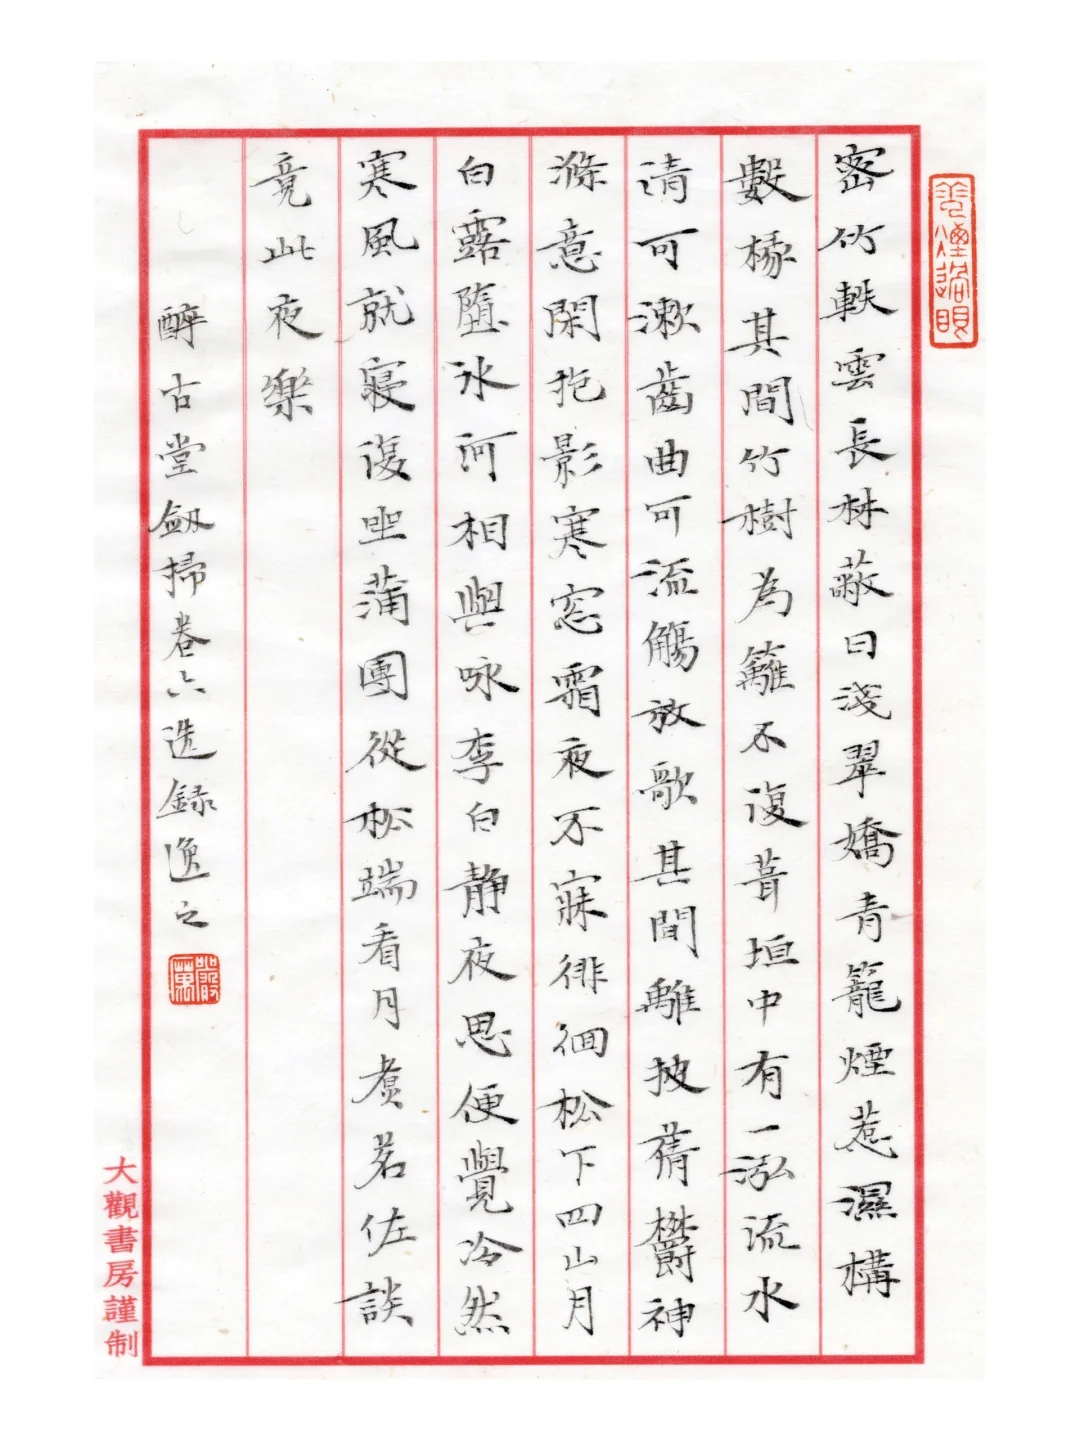 雲煙過眼
密竹軼雲長林蔽日淺翠嬌青籠煙惹濕構
數椽其間竹樹為籬不復葺垣中有一泓流水
清可漱齒曲可流觴放歌其間離披蒨鬱神
滌意閑抱影寒窓霜夜不寐徘徊松下四山月
白露墮冰河相與咏李白静夜思便覺冷然
寒風就寢復坐蒲團從松端看月煮茗佐談
竟此夜樂
醉古堂劔掃卷六选録逸之
大觀書房謹制